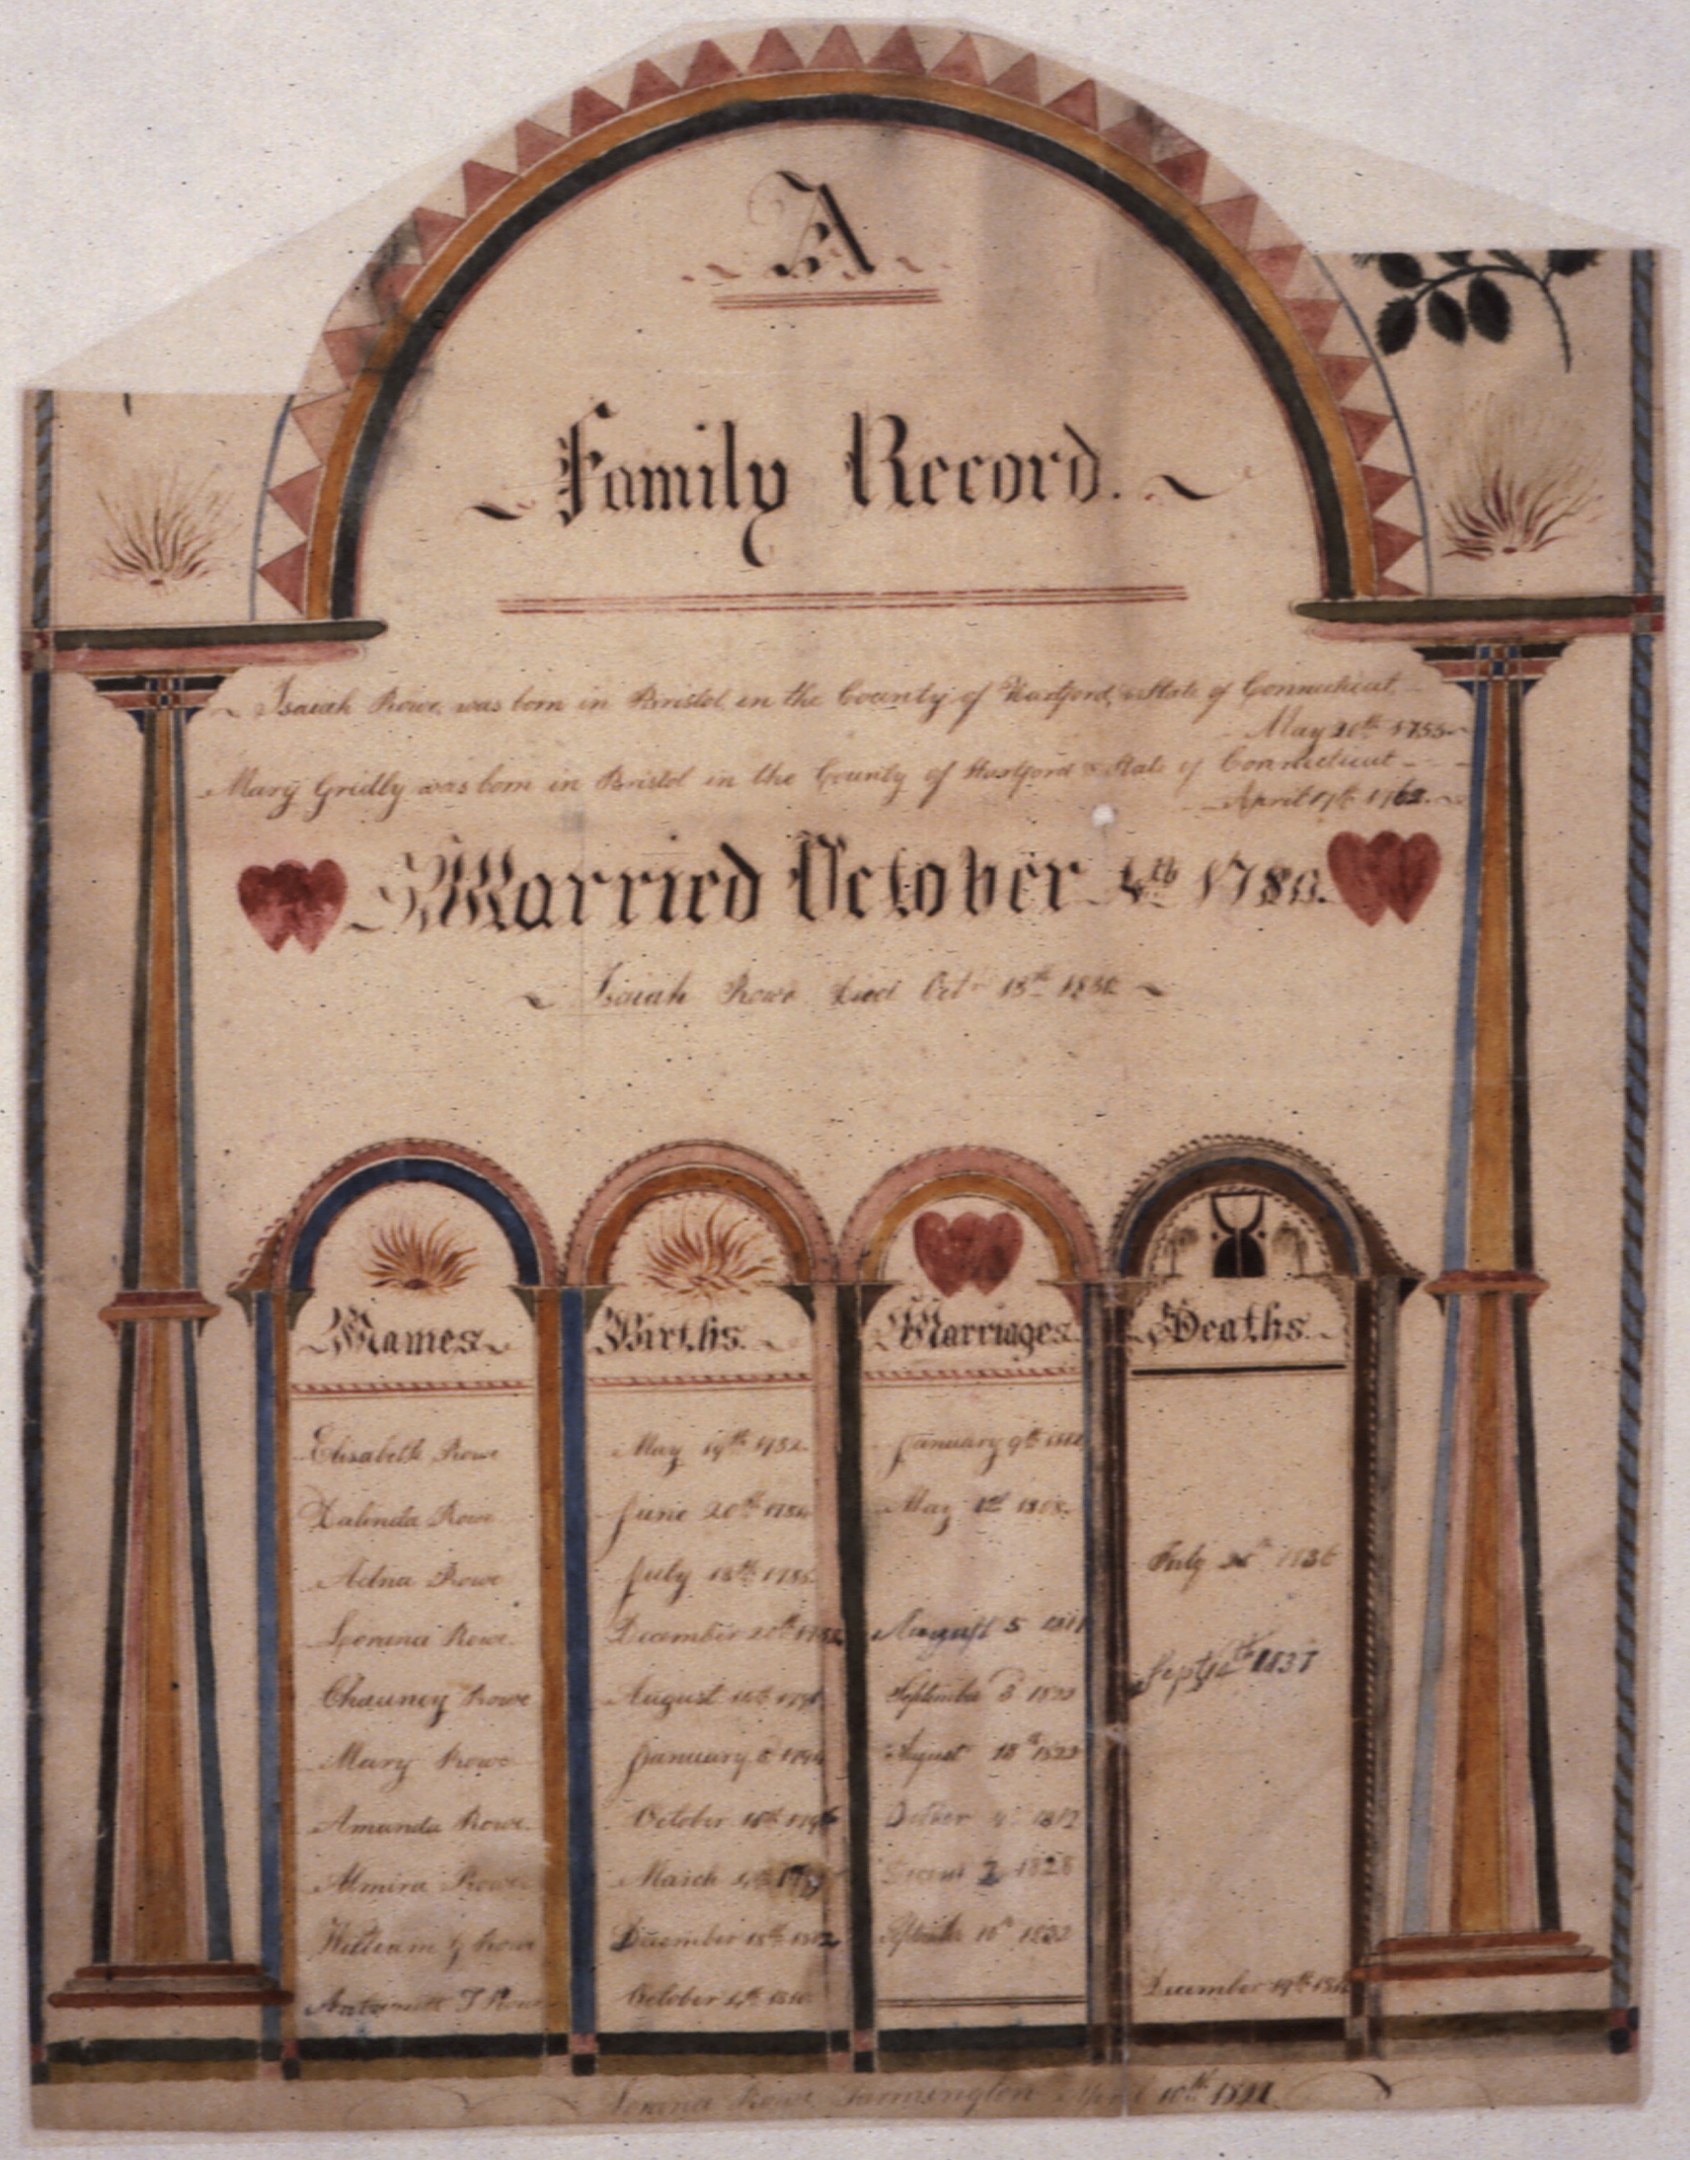 A
Family Record.
Isaiah Rowe, was born in Bristol in the County of Hartford & State of Connecticut,
May 20th 1755
Mary Gridly was born in Bristol in the County of Hartford & State of Connecticut
April 17th 1762.
Married October 4th 1780.
Isaiah Rowe Died Octr 13th
Names Births. Marriages. Deaths.
Elisabeth Rowe May 19th 1782. January 9th
Rowe June 20th May 1808.
Adna Rowe July 13th July 1836
Lorana Rowe. December 20th August 5 1811
Chauncy Rowe August September 3
Mary Rowe January August 18th 1822
Amanda Rowe. October 16th 1796 October 1817
Almira Rowe March 4th 2 1828
Sept 1837
William G Rowe December 15th 1802 September 10th
Rowe October 4th December 19th
Rowe Farmington April 10th